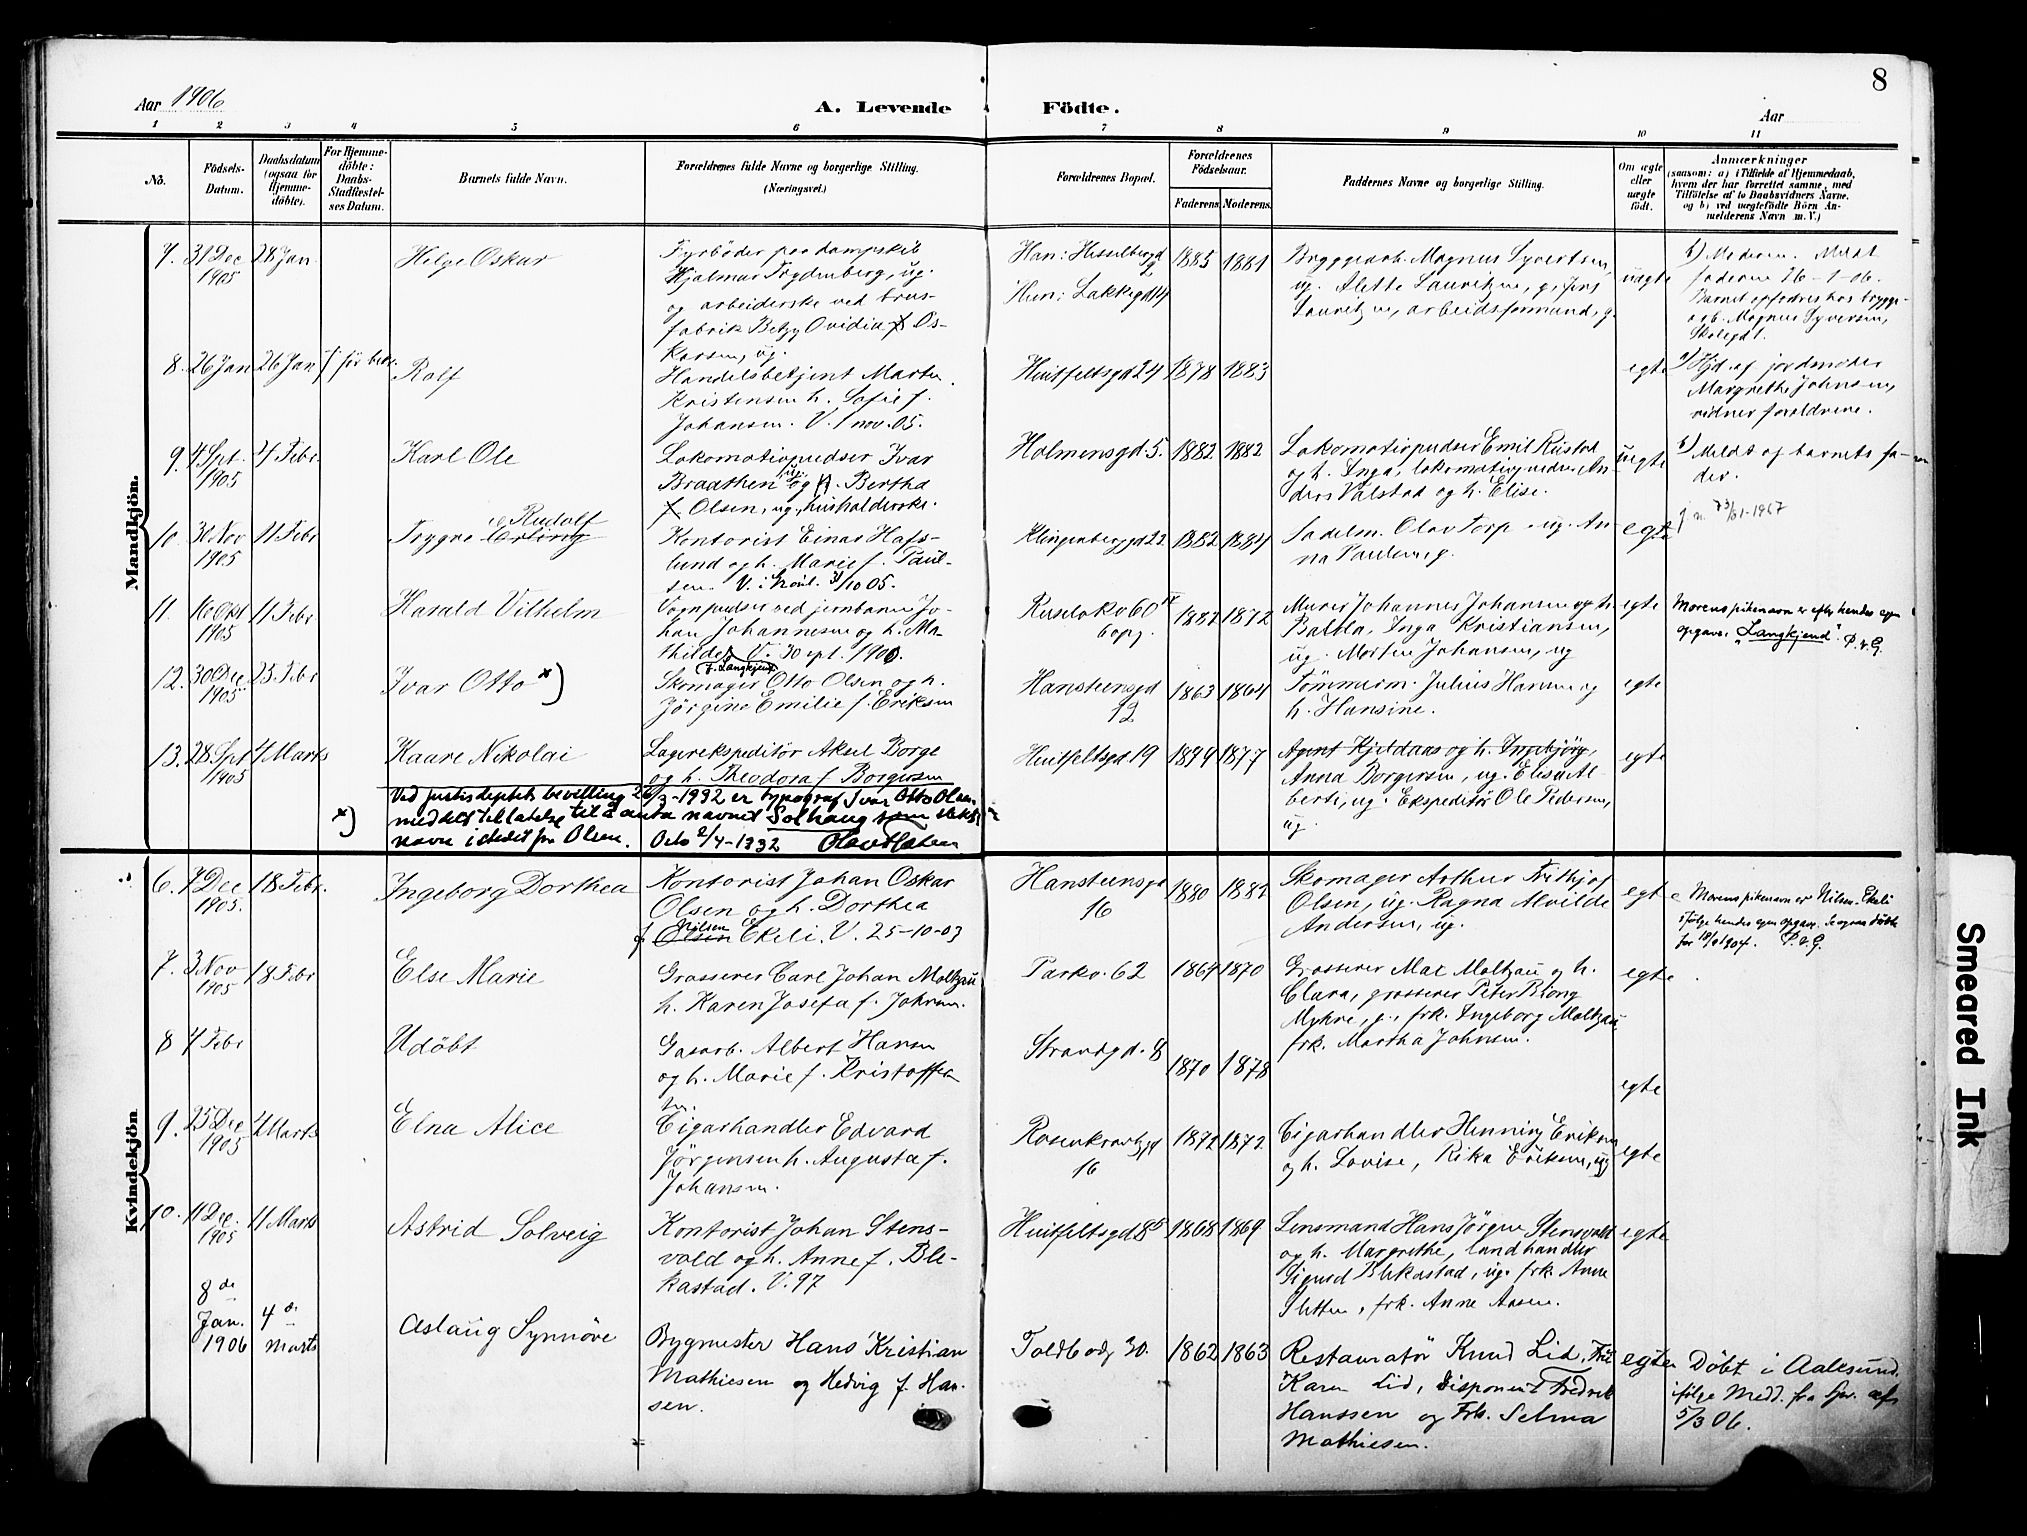 Aar 1906
A. Levende Födte.
Aar
8
1 2 3 4 5 6 7 8 9 10 11
No.
Födsels-
Datum.
Daabsdatum
(ogsaa for
Hjemme-
döbte).
For Hjemme-
döbte:
Daabs-
Stadfæstel-
ses Datum.
Barnets fulde Navn.
Forældrenes fulde Navne og borgerlige Stilling.
(Næringsvei.)
Forældrenes Bopæl.
Forældrenes
Födselsaar.
Faderens. Moderens.
Faddernes Navne og borgerlige Stilling.
Om ægte
eller
uægte
födt.
Anmærkninger
(saasom: a) i Tilfælde af Hjemmedaab,
hvem der har forrettet samme, med
Tilföielse af to Daabsvidners Navne,
og b) ved uægtefödte Börn An-
melderens Navn m. V.)
Mandkjön.
7. 31 Dec 1905
28 Jan
Helge Oskar
Fyrbøder paa dampskib
Hjalmar Frydenberg, ug.
og arbeiderske ved brus-
fabrik Betzy Ovidia f Os-
karsen, ug.
Han: Hesselberggd
Hun: Lakkegd 14
1885 1881
Bryggearb. Magnus Syvertsen,
ug. Alette Lauritzen, g. Jens
Lauritzen, arbeidsformand, g.
uægte
b) Moderen. Meldt
faderen 26-1-06.
Barnet opfødres hos brygge-
arb. Magnus Syversen,
Skolegd 1.
8. 26 Jan
26 Jan
f før bekr.
Rolf
Handelsbetjent Martin
Kristensen h. Sofie f.
Johansen. V. 1 nov. 05.
Huitfeltsgd 24
1878 1883
egte
a) Hjd. af jordmoder
Margrethe Johnsen,
vidner forældrene.
9. 4 Sept. 1905
4 Febr.
Karl Ole
Lokomotivpudser Ivar
Braathen ug. og Bertha
f Olsen, ug., husholderske.
Holmensgd. 5.
1882 1882
Lokomotivpudser Emil Rustad
og h. Inga, lokomotivpudser An-
ders Valstad og h. Elise.
uægte
b) Meldt af barnets fa-
der.
10. 30 Nov 1905
11 Febr
Trygve Erling Rudolf
Kontorist Einar Hafs-
lund og h. Marie f. Paul-
sen. V. 3/10 05.
Klingenberggd 22
1882 1884
Sadelm. Olav Torp, ug. An-
na Paulsen, g.
egte
11. 16 Okt 1905
11 Febr
Harald Vilhelm
Vognpudser ved jernbanen Jo-
han Johannesen og h. Ma-
thilde f. Langkjend V. 30 spt. 1900.
Ruseløkv 60 IV
bopg.
1882 1872
Murer Johannes Johansen og h.
Balbla, Inga Kristiansen,
ug. Morten Johansen, ug
egte
Morens pikenavn er efter hendes egen
opgave „Langkjend". P. v G.
12. 30 Dec 1905
25 Febr
Ivar Otto x)
Skomager Otto Olsen og h.
Jørgine Emilie f. Eriksen
Hansteensgd
12
1863 1864
Tömmerm. Julius Hansen og
h. Hansine.
egte
13. 28 Spt 1905
4 Marts
Kaare Nikolai
Lagerekspeditør Aksel Borge
og h. Theodora f. Borgersen
Huitfeltsgd 19
1879 1877
Agent Kjeldaas og h. Ingebjörg,
Anna Borgersen, ug. Elisa Al-
berti, ug. Ekspeditör Ole Pedersen,
ug.
egte
x) Ved justisdeptets bevilling 26/3-1932 er typograf Ivar Otto Olsen
meddelt tillatelse til å anta navnet Solhaug som slekts-
navn i stedet for Olsen. Oslo 2/4-1932
Kvindekjön
6. 7 Dec 1905.
18 Febr.
Ingeborg Dorthea
Kontorist Johan Oskar
Olsen og h. Dorthea
f. Olsen Nilsen Ekeli. V. 25-10-03
Hansteensgd
16
1880 1882
Skomager Arthur Frithjof
Olsen, ug. Ragna Alvilde
Andersen, ug.
egte
Morens pikenavn er Nilsen-Ekeli
ifølge hendes egen opgave.
P. v G.
7. 3 Nov 1905
18 Febr
Else Marie
Grosserer Carl Johan Moltzau
h. Karen Josefa f. Johnsen.
Parkv. 62
1864 1870
Grosserer Max Moltzau og h.
Clara, grosserer Peter Biong
Myhre, g., frk. Ingeborg Moltzau,
frk. Martha Johnsen.
egte
8 4 Febr
Udöbt
Gasarb. Albert Hansen
og h. Marie f. Kristoffer-
sen.
Strandgd. 8
1870 1878
egte
9. 25 Dec 1905
4 Marts
Elna Alice
Cigarhandler Edvard
Jörgensen h. Augusta f.
Johansen.
Rosenkrantzgd
16
1872 1872.
Cigarhandler Henning Eriksen
og h. Lovise, Rika Eriksen, ug
egte
10. 11 Dec. 1905
11 Marts
Astrid Solveig
Kontorist Johan Stens-
vold og h. Anne f. Ble-
kastad. V. 97
Huitfeltsgd 8 b
1868 1869
Lensmand Hans Jörgen Stensvold
og h. Margrethe, landhandler
Sigurd Blekastad, ug. frk. Anne
Sletten, frk. Anne Aasen.
egte
8 de Jan. 1906
4 de Marts
Aslaug Synnöve
Bygmester Hans Kristian
Mathiesen og Hedvig f. Han-
sen.
Toldbodg 30.
1862 1863
Restauratör Knud Lid, Fru
Karen Lid, Disponent Fredrik
Hanssen og Frk. Selma
Mathiesen.
egte
Döbt i Aalesund.
ifölge Medd. fra Spr. af
5/3 06.
Smeared Ink